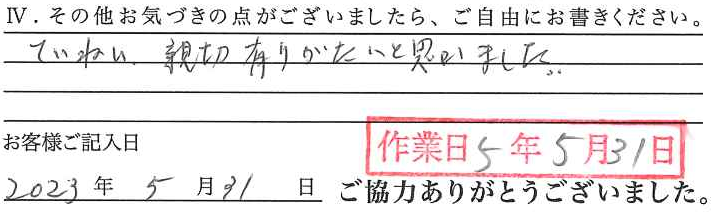 Ⅳ．その他お気づきの点がございましたら、ご自由にお書きください。
ていねい、親切有りがたいと思いました。
お客様ご記入日
作業日5年5月31日
2023年 5 月31 日 ご協力ありがとうございました。